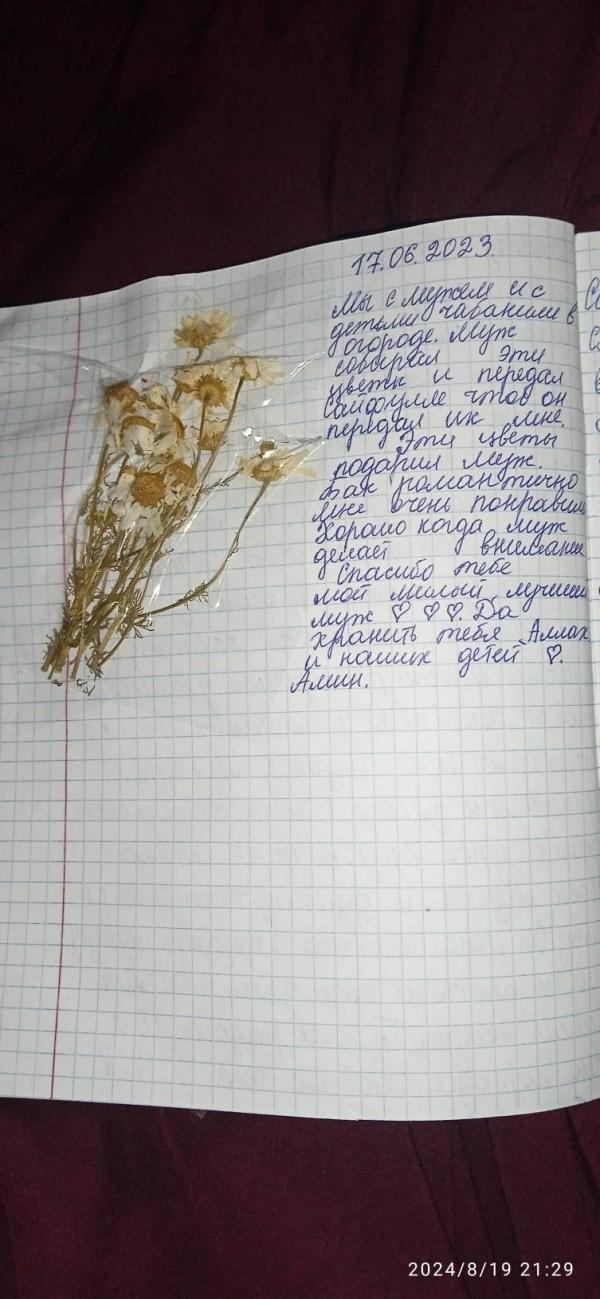 17.06.2023.
Мы с мужем и с
детьми чабанили в
огороде. Муж
собирал эти
цветк и передал
Сайфулле чтоб он
передал их мне.
Эти цветы
подарил муж.
Как романтично
мне очень понравил
Хорошо когда муж
делает внимание
Спасибо тебе
мой милый, лучший
муж ♡ ♡ ♡. Да
хранить тебя Аллах
и наших детей ♡.
Амин.
2024/8/19 21:29